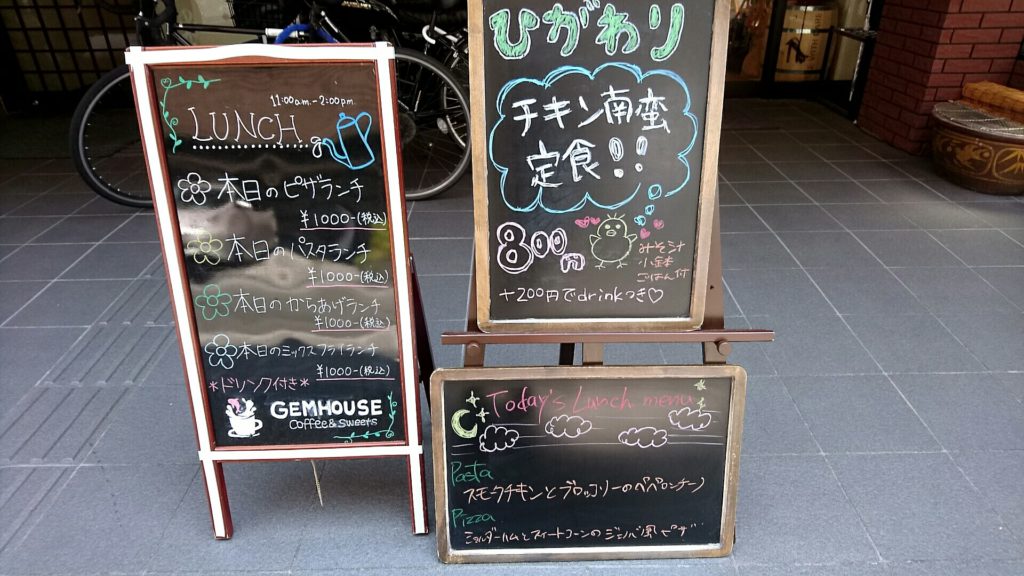 11:00a.m.-2:00pm
LUNCH
本日のピザランチ
¥1000-(税込)
本日のパスタランチ
¥1000-(税込)
本日のからあげランチ
¥1000-(税込)
本日のミックスフライランチ
¥1000-(税込)
*ドリンク付き*
GEMHOUSE
Coffee & Sweets
ひがわり
チキン南蛮
定食!!
800円
みそ汁
小鉢
ごはん付
+200円でdrinkつき♡
Today's Lunch menu
Pasta
スモークチキンとブロッコリーのペペロンチーノ
Pizza
ショルダーハムとスイートコーンのジェノバ風ピザ